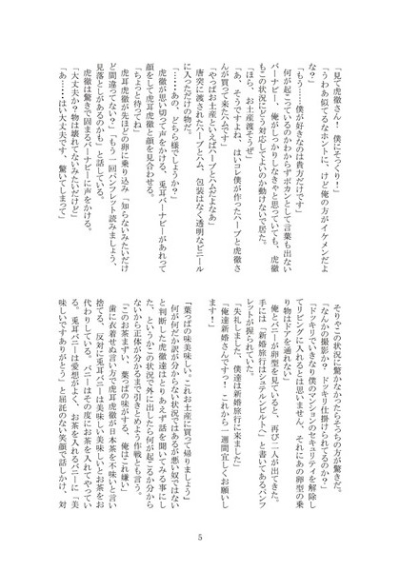 「見て虎徹さん!　僕にそっくり!」
「うわあ似てるなホントに、けど俺の方がイケメンだよ
な?」
「もう……僕が好きなのは貴方だけです」
　何が起こっているのかわからずポカンとして言葉も出ない
バーナビー、俺がしっかりしなきゃと思っていても、虎徹
もこの状況にどう対応してよいのか動けないで居た。
「ほら、お土産渡そうぜ」
「あ、そうですよね、はいコレ僕が作ったハーブと虎徹さ
んが買って来たハムです」
「やっぱお土産といえばハーブとハムだよなあ」
　唐突に渡されたハーブとハム、包装はなく透明なビニール
に入っただけの物だ。
「……あの、どちら様でしょうか?」
　虎徹が思い切って声をかける、兎耳バーナビーがあれって
顔をして虎耳虎徹と顔を見合わせる。
「ちょっと待ってね」
　虎耳虎徹が先ほどの卵に乗り込み「知らないみたいだけ
ど間違ってない?」「もう一回パンフレット読みましょう、
見落としがあるのかも」と話している。
　虎徹は驚きで固まるバーナビーに声をかける。
「大丈夫か?　物は壊れてないみたいだけど」
「あ……はい大丈夫です、驚いてしまって」
　そりゃこの状況に驚かなかったらそっちの方が驚きだ。
「なんかの撮影か?　ドッキリ仕掛けられてるのか?」
「ドッキリでいきなり僕のマンションのセキュリティを解除し
てリビングに入れるとは思いません、それにあの卵型の乗
り物はドアを通れない」
　俺とバニーが卵型を見ていると、再び二人が出てきた。
手には「新婚旅行はシュテルンビルトへ」と書いてあるパンフ
レットが握られていた。
「失礼しました、僕達は新婚旅行に来ました」
「俺達新婚さんですっ!　これから一週間宜しくお願いし
「葉っぱの味美味しい、これお土産に買って帰りましょう」
　何が何だか訳が分からない状況ではあるが悪い奴ではない
と判断した虎徹達はとりあえず話を聞いてみる事にし
た、というかこの状況で外に出したら何が起こるか分から
ないから正体が分かるまで引きとめよう作戦とも言う。
「このお茶まずい、葉っぱの味がする、俺はこれ嫌い」
　歯に衣着せぬ言い方で虎耳虎徹が日本茶を不味いと言い
捨てる、反対に兎耳バニーは美味しい美味しいとお茶をお
代わりしている。バニーはその度にお茶を入れてやってい
る。兎耳バニーは愛想がよく、お茶を入れるバニーに「美
味しいですありがとう」と屈託のない笑顔で話しかけ、対
5